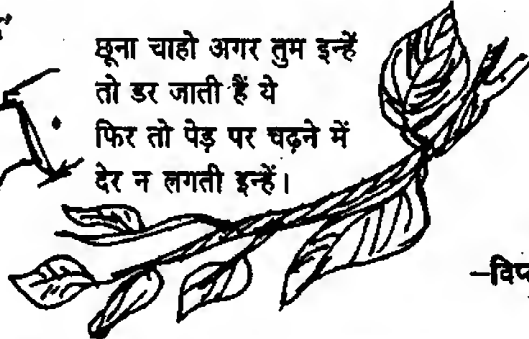 छूना चाहो अगर तुम इन्हें
तो डर जाती हैं ये
फिर तो पेड़ पर चढ़ने में
देर न लगती इन्हें।